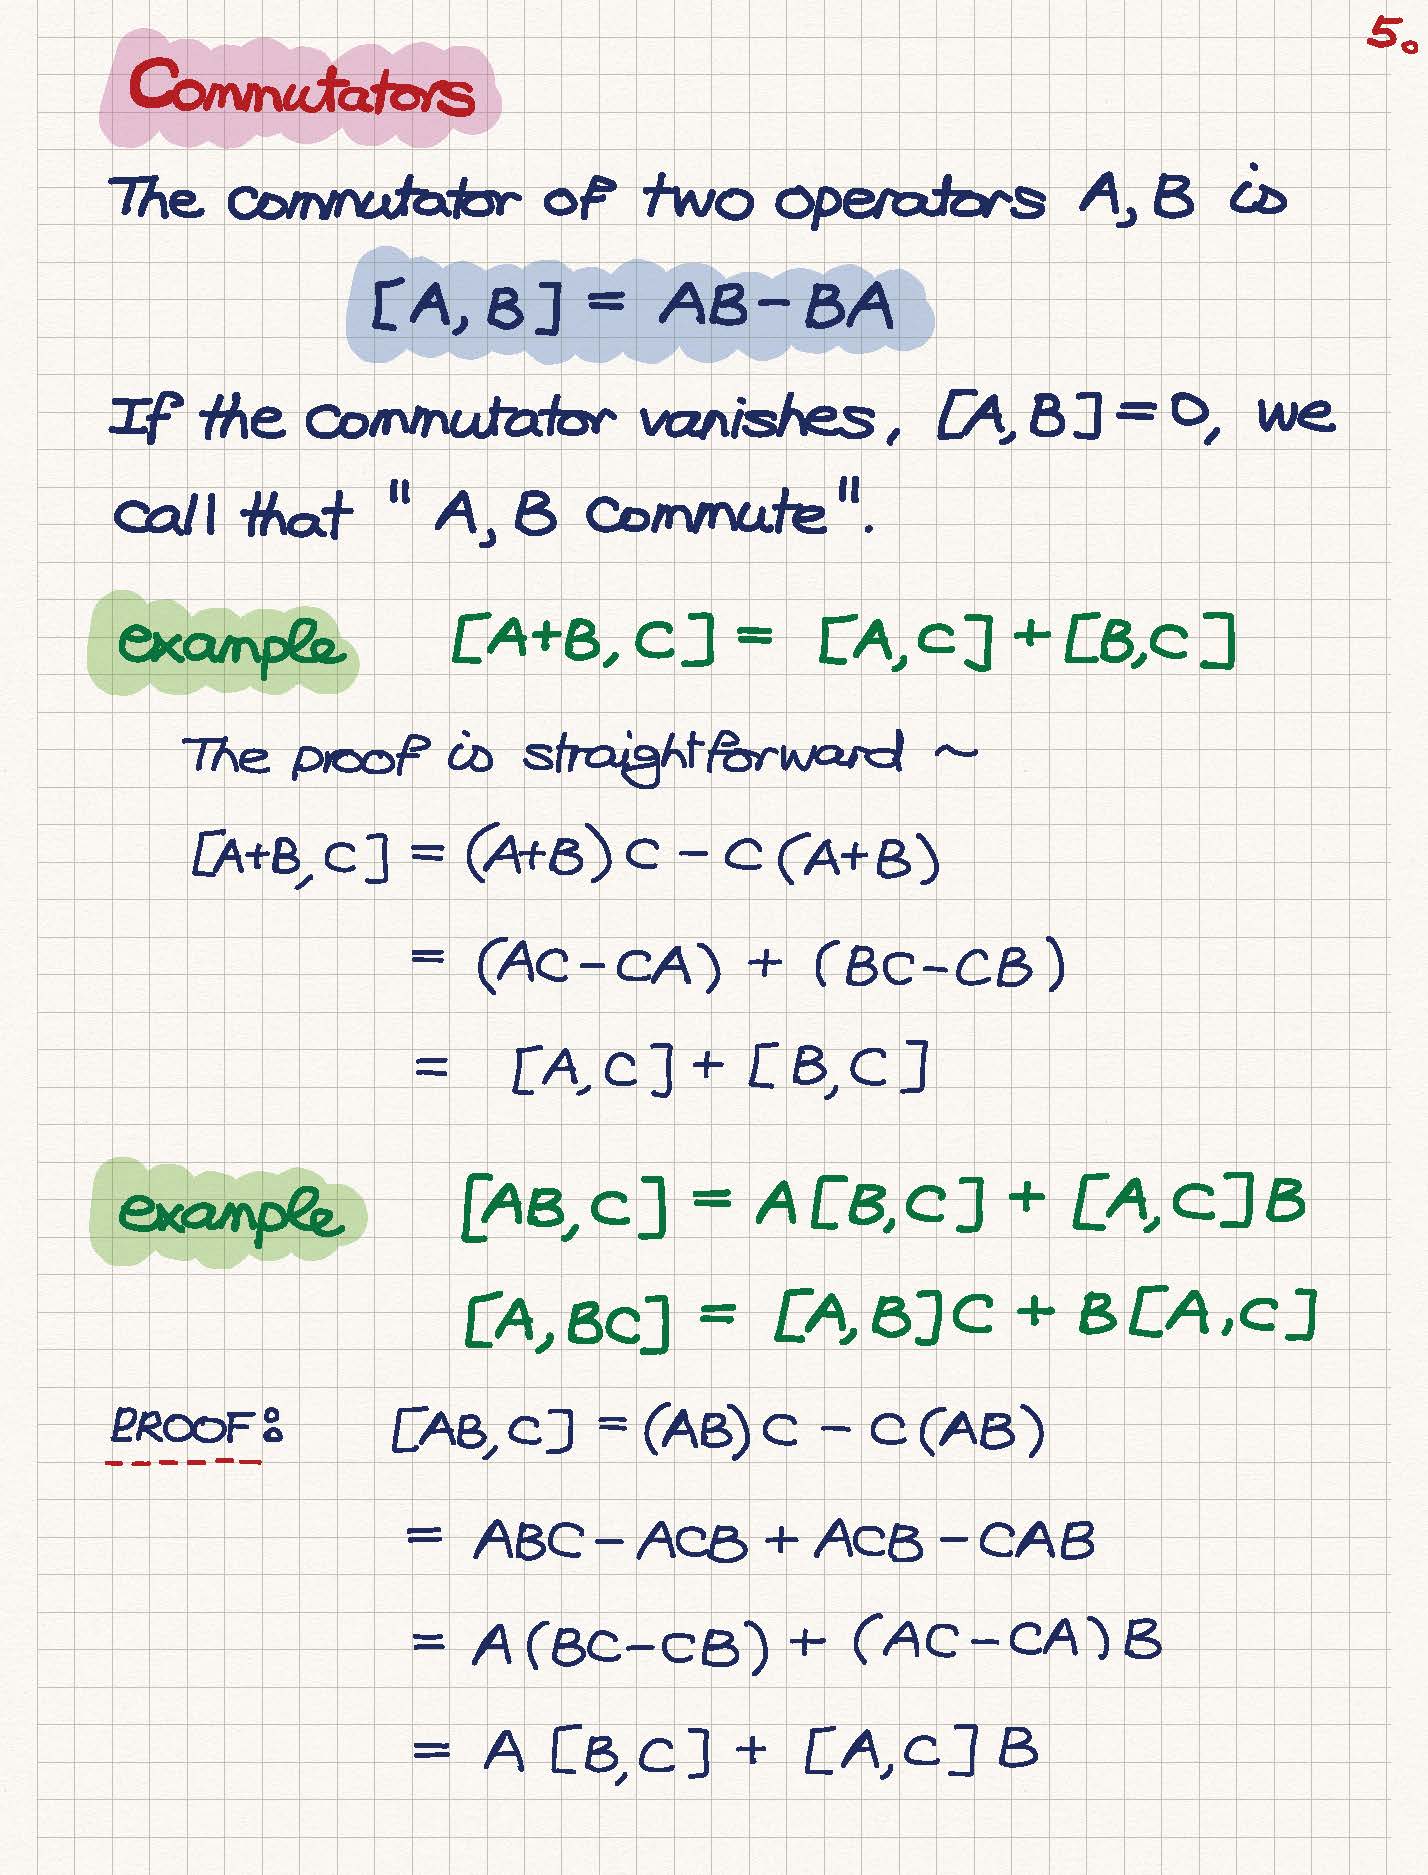 5.
Commutators
The commutator of two operators A, B is
[A, B] = AB - BA
If the commutator vanishes, [A, B] = 0, we
call that "A, B commute".
example [A+B, C] = [A, C] + [B, C]
The proof is straightforward ~
[A+B, C] = (A+B) C - C (A+B)
= (AC - CA) + (BC - CB)
= [A, C] + [B, C]
example [AB, C] = A [B, C] + [A, C] B
[A, BC] = [A, B] C + B [A, C]
PROOF: [AB, C] = (AB) C - C (AB)
= ABC - ACB + ACB - CAB
= A (BC - CB) + (AC - CA) B
= A [B, C] + [A, C] B